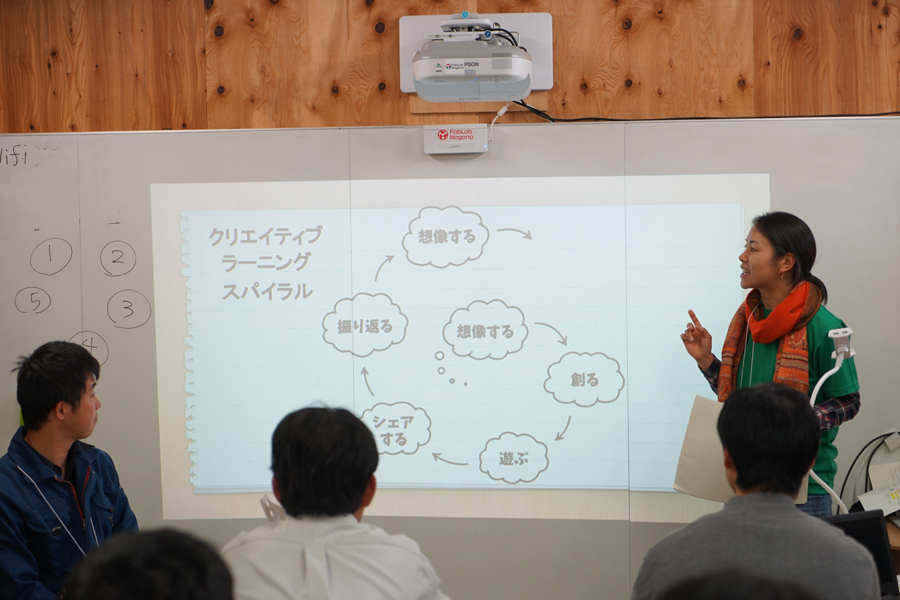 PSON
FabLab
Nagano
ifi
① ②
⑤ ③
④
クリエイティブ
ラーニング
スパイラル
想像する
振り返る
想像する
創る
シェア
する
遊ぶ